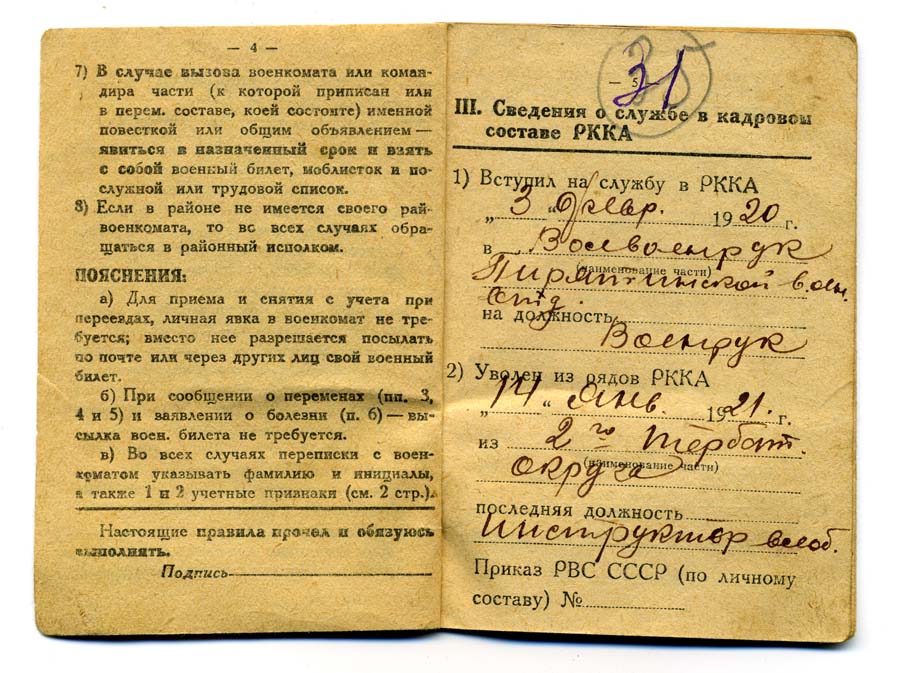 — 4 —
7) В случае вызова военкомата или коман-
дира части (к которой приписан или
в перем. составе, коей состоите) именной
повесткой или общим объявлением —
явиться в назначенный срок и взять
с собой военный билет, моблисток и по-
служной или трудовой список.
8) Если в районе не имеется своего рай-
военкомата, то во всех случаях обра-
щаться в районный исполком.
ПОЯСНЕНИЯ:
а) Для приема и снятия с учета при
переездах, личная явка в военкомат не тре-
буется; вместо нее разрешается посылать
по почте или через других лиц свой военный
билет.
б) При сообщении о переменах (пп. 3,
4 и 5) и заявлении о болезни (п. 6) — вы-
сылка воен. билета не требуется.
в) Во всех случаях переписки с воен-
коматом указывать фамилию и инициалы,
а также 1 и 2 учетные признаки (см. 2 стр.).
Настоящие правила прочел и обязуюсь
выполнять.
Подпись
35
31
— 5 —
III. Сведения о службе в кадровом
составе РККА
1) Вступил на службу в РККА
„3“ Февр. 1920 г.
в Волвоенрук
(наименование части)
Пирятинской воен.
Отд.
на должность
Военрук
2) Уволен из рядов РККА
„14“ Янв. 1921. г.
из 2го Тербат.
(наименование части)
округа
последняя должность
Инструктор всеоб.
Приказ РВС СССР (по личному
составу) №